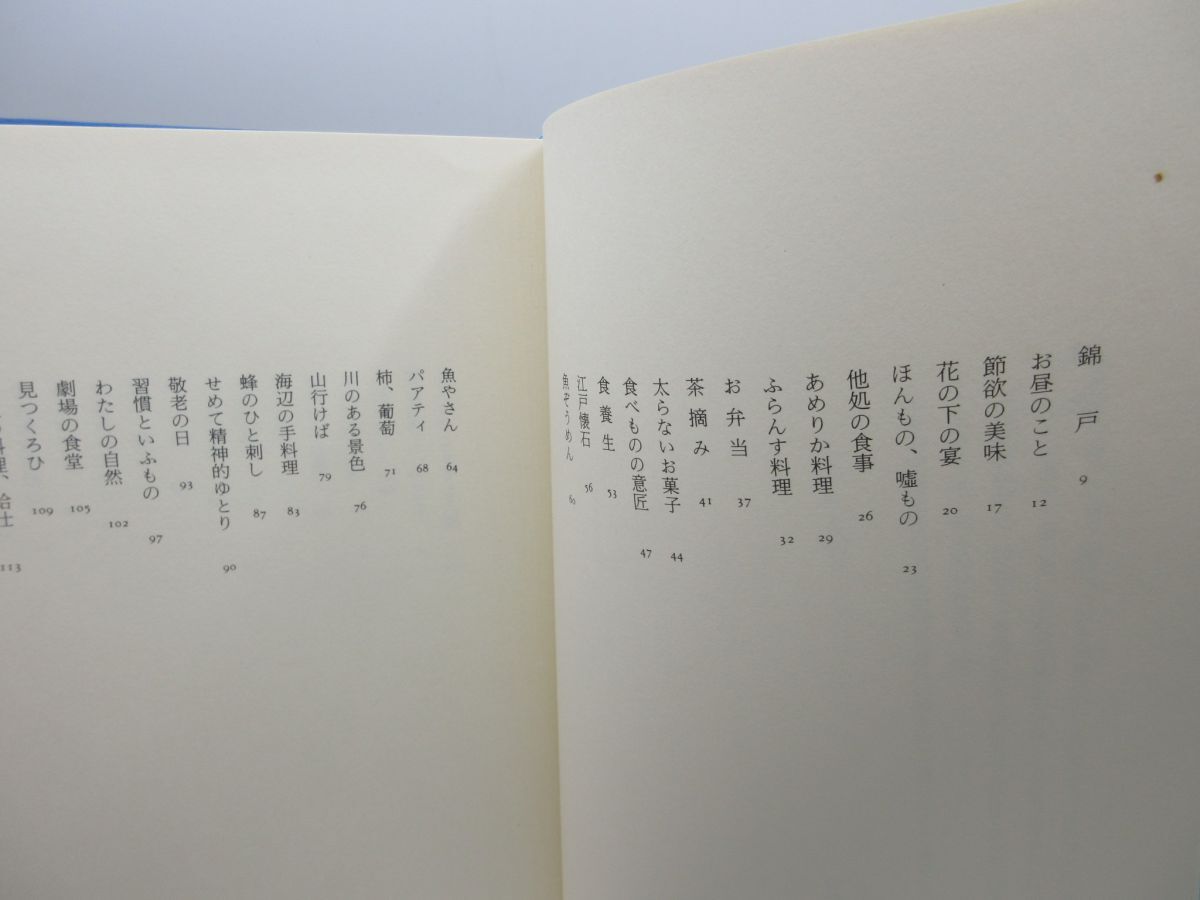 錦戸 9
お昼のこと 12
節欲の美味 17
花の下の宴 20
ほんもの、嘘もの 23
他処の食事 26
あめりか料理 29
ふらんす料理 32
お弁当 37
茶摘み 41
太らないお菓子 44
食べものの意匠 47
食養生 53
江戸懐石 56
魚ぞうめん 60
魚やさん 64
パアティ 68
柿、葡萄 71
川のある景色 76
山行けば 79
海辺の手料理 83
蜂のひと刺し 87
せめて精神的ゆとり 90
敬老の日 93
習慣といふもの 97
わたしの自然 102
劇場の食堂 105
見つくろひ 109
料理、給仕 113